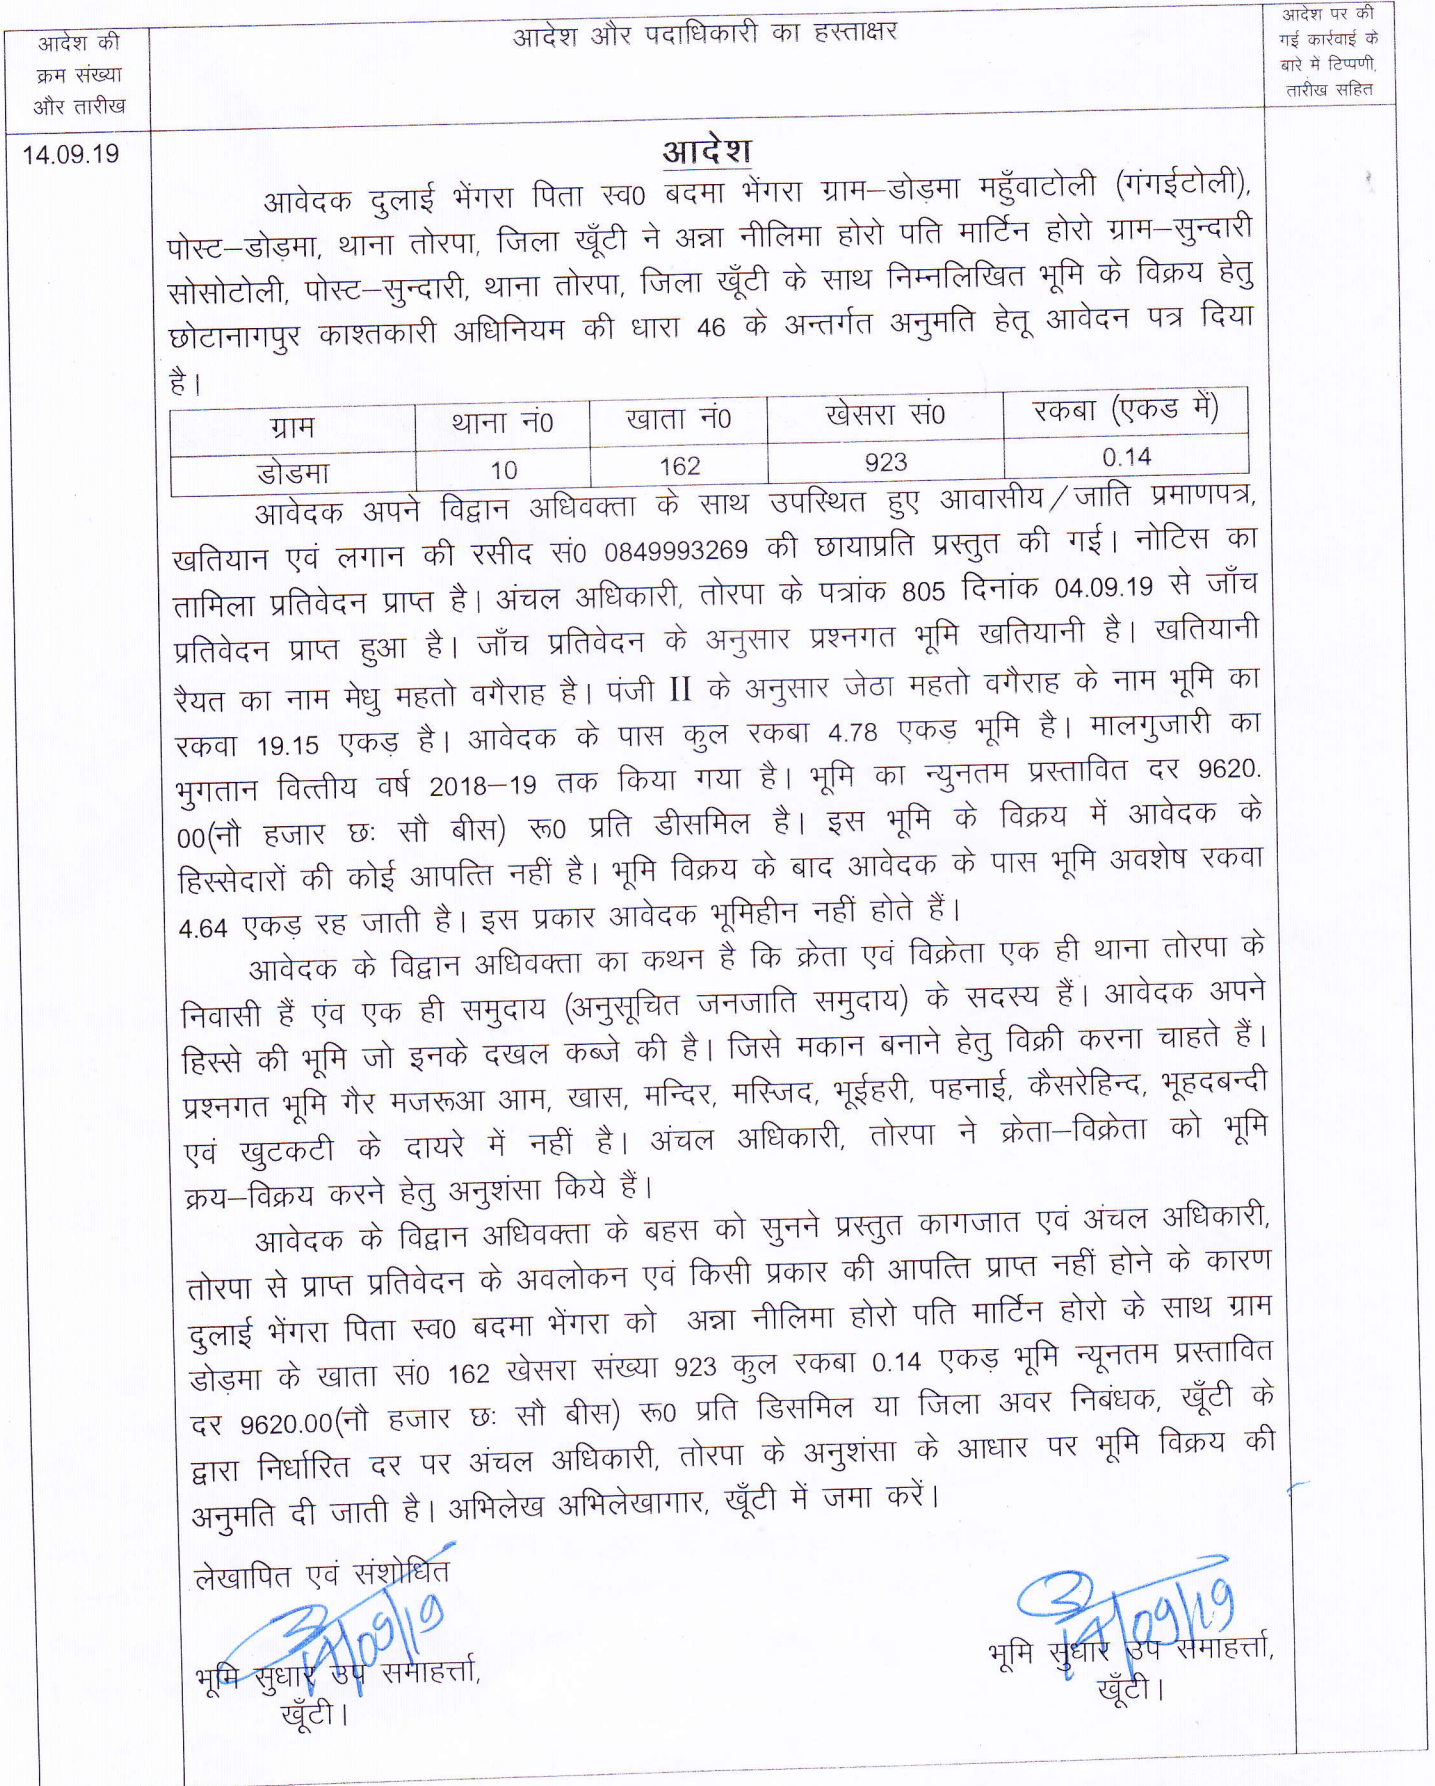 आदेश की
क्रम संख्या
और तारीख
आदेश और पदाधिकारी का हस्ताक्षर
आदेश पर की
गई कार्रवाई के
बारे में टिप्पणी,
तारीख सहित
14.09.19
आदेश
आवेदक दुलाई भेंगरा पिता स्व0 बदमा भेंगरा ग्राम–डोड़मा महुँवाटोली (गंगईटोली),
पोस्ट–डोड़मा, थाना तोरपा, जिला खूँटी ने अन्ना नीलिमा होरो पति मार्टिन होरो ग्राम–सुन्दारी
सोसोटोली, पोस्ट–सुन्दारी, थाना तोरपा, जिला खूँटी के साथ निम्नलिखित भूमि के विक्रय हेतु
छोटानागपुर काश्तकारी अधिनियम की धारा 46 के अन्तर्गत अनुमति हेतू आवेदन पत्र दिया
है।
ग्राम थाना नं0 खाता नं0 खेसरा सं0 रकबा (एकड में)
डोडमा 10 162 923 0.14
आवेदक अपने विद्वान अधिवक्ता के साथ उपस्थित हुए आवासीय/जाति प्रमाणपत्र,
खतियान एवं लगान की रसीद सं0 0849993269 की छायाप्रति प्रस्तुत की गई। नोटिस का
तामिला प्रतिवेदन प्राप्त है। अंचल अधिकारी, तोरपा के पत्रांक 805 दिनांक 04.09.19 से जाँच
प्रतिवेदन प्राप्त हुआ है। जाँच प्रतिवेदन के अनुसार प्रश्नगत भूमि खतियानी है। खतियानी
रैयत का नाम मेधु महतो वगैराह है। पंजी II के अनुसार जेठा महतो वगैराह के नाम भूमि का
रकवा 19.15 एकड़ है। आवेदक के पास कुल रकबा 4.78 एकड़ भूमि है। मालगुजारी का
भुगतान वित्तीय वर्ष 2018–19 तक किया गया है। भूमि का न्युनतम प्रस्तावित दर 9620.
00(नौ हजार छः सौ बीस) रू0 प्रति डीसमिल है। इस भूमि के विक्रय में आवेदक के
हिस्सेदारों की कोई आपत्ति नहीं है। भूमि विक्रय के बाद आवेदक के पास भूमि अवशेष रकवा
4.64 एकड़ रह जाती है। इस प्रकार आवेदक भूमिहीन नहीं होते हैं।
आवेदक के विद्वान अधिवक्ता का कथन है कि क्रेता एवं विक्रेता एक ही थाना तोरपा के
निवासी हैं एंव एक ही समुदाय (अनुसूचित जनजाति समुदाय) के सदस्य हैं। आवेदक अपने
हिस्से की भूमि जो इनके दखल कब्जे की है। जिसे मकान बनाने हेतु विक्री करना चाहते हैं।
प्रश्नगत भूमि गैर मजरूआ आम, खास, मन्दिर, मस्जिद, भूईहरी, पहनाई, कैसरेहिन्द, भूहदबन्दी
एवं खुटकटी के दायरे में नहीं है। अंचल अधिकारी, तोरपा ने क्रेता–विक्रेता को भूमि
क्रय–विक्रय करने हेतु अनुशंसा किये हैं।
आवेदक के विद्वान अधिवक्ता के बहस को सुनने प्रस्तुत कागजात एवं अंचल अधिकारी,
तोरपा से प्राप्त प्रतिवेदन के अवलोकन एवं किसी प्रकार की आपत्ति प्राप्त नहीं होने के कारण
दुलाई भेंगरा पिता स्व0 बदमा भेंगरा को अन्ना नीलिमा होरो पति मार्टिन होरो के साथ ग्राम
डोड़मा के खाता सं0 162 खेसरा संख्या 923 कुल रकबा 0.14 एकड़ भूमि न्यूनतम प्रस्तावित
दर 9620.00(नौ हजार छः सौ बीस) रू0 प्रति डिसमिल या जिला अवर निबंधक, खूँटी के
द्वारा निर्धारित दर पर अंचल अधिकारी, तोरपा के अनुशंसा के आधार पर भूमि विक्रय की
अनुमति दी जाती है। अभिलेख अभिलेखागार, खूँटी में जमा करें।
लेखापित एवं संशोधित
14/09/19
14/09/19
भूमि सुधार उप समाहर्त्ता,
खूँटी।
भूमि सुधार उप समाहर्त्ता,
खूँटी।